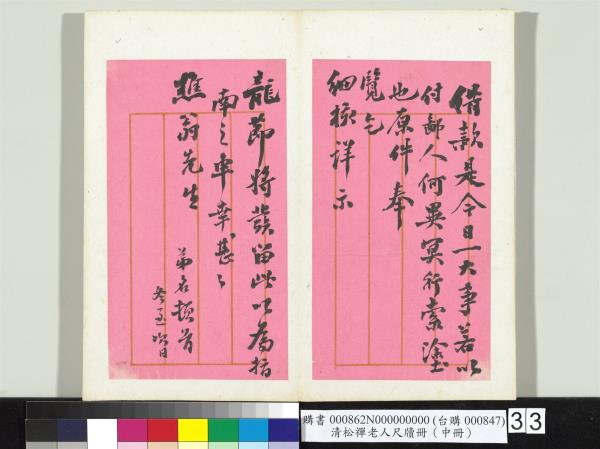 借款是今日一大事若以
付鄙人何異冥行索塗
也原件奉
覽乞
細核詳示
龍節將發留此以為指
南之車幸甚〻
樵翁先生
弟名頓首
冬至次日
購書 000862N000000000 (台購 000847)
清松禪老人尺牘冊（中冊）
33